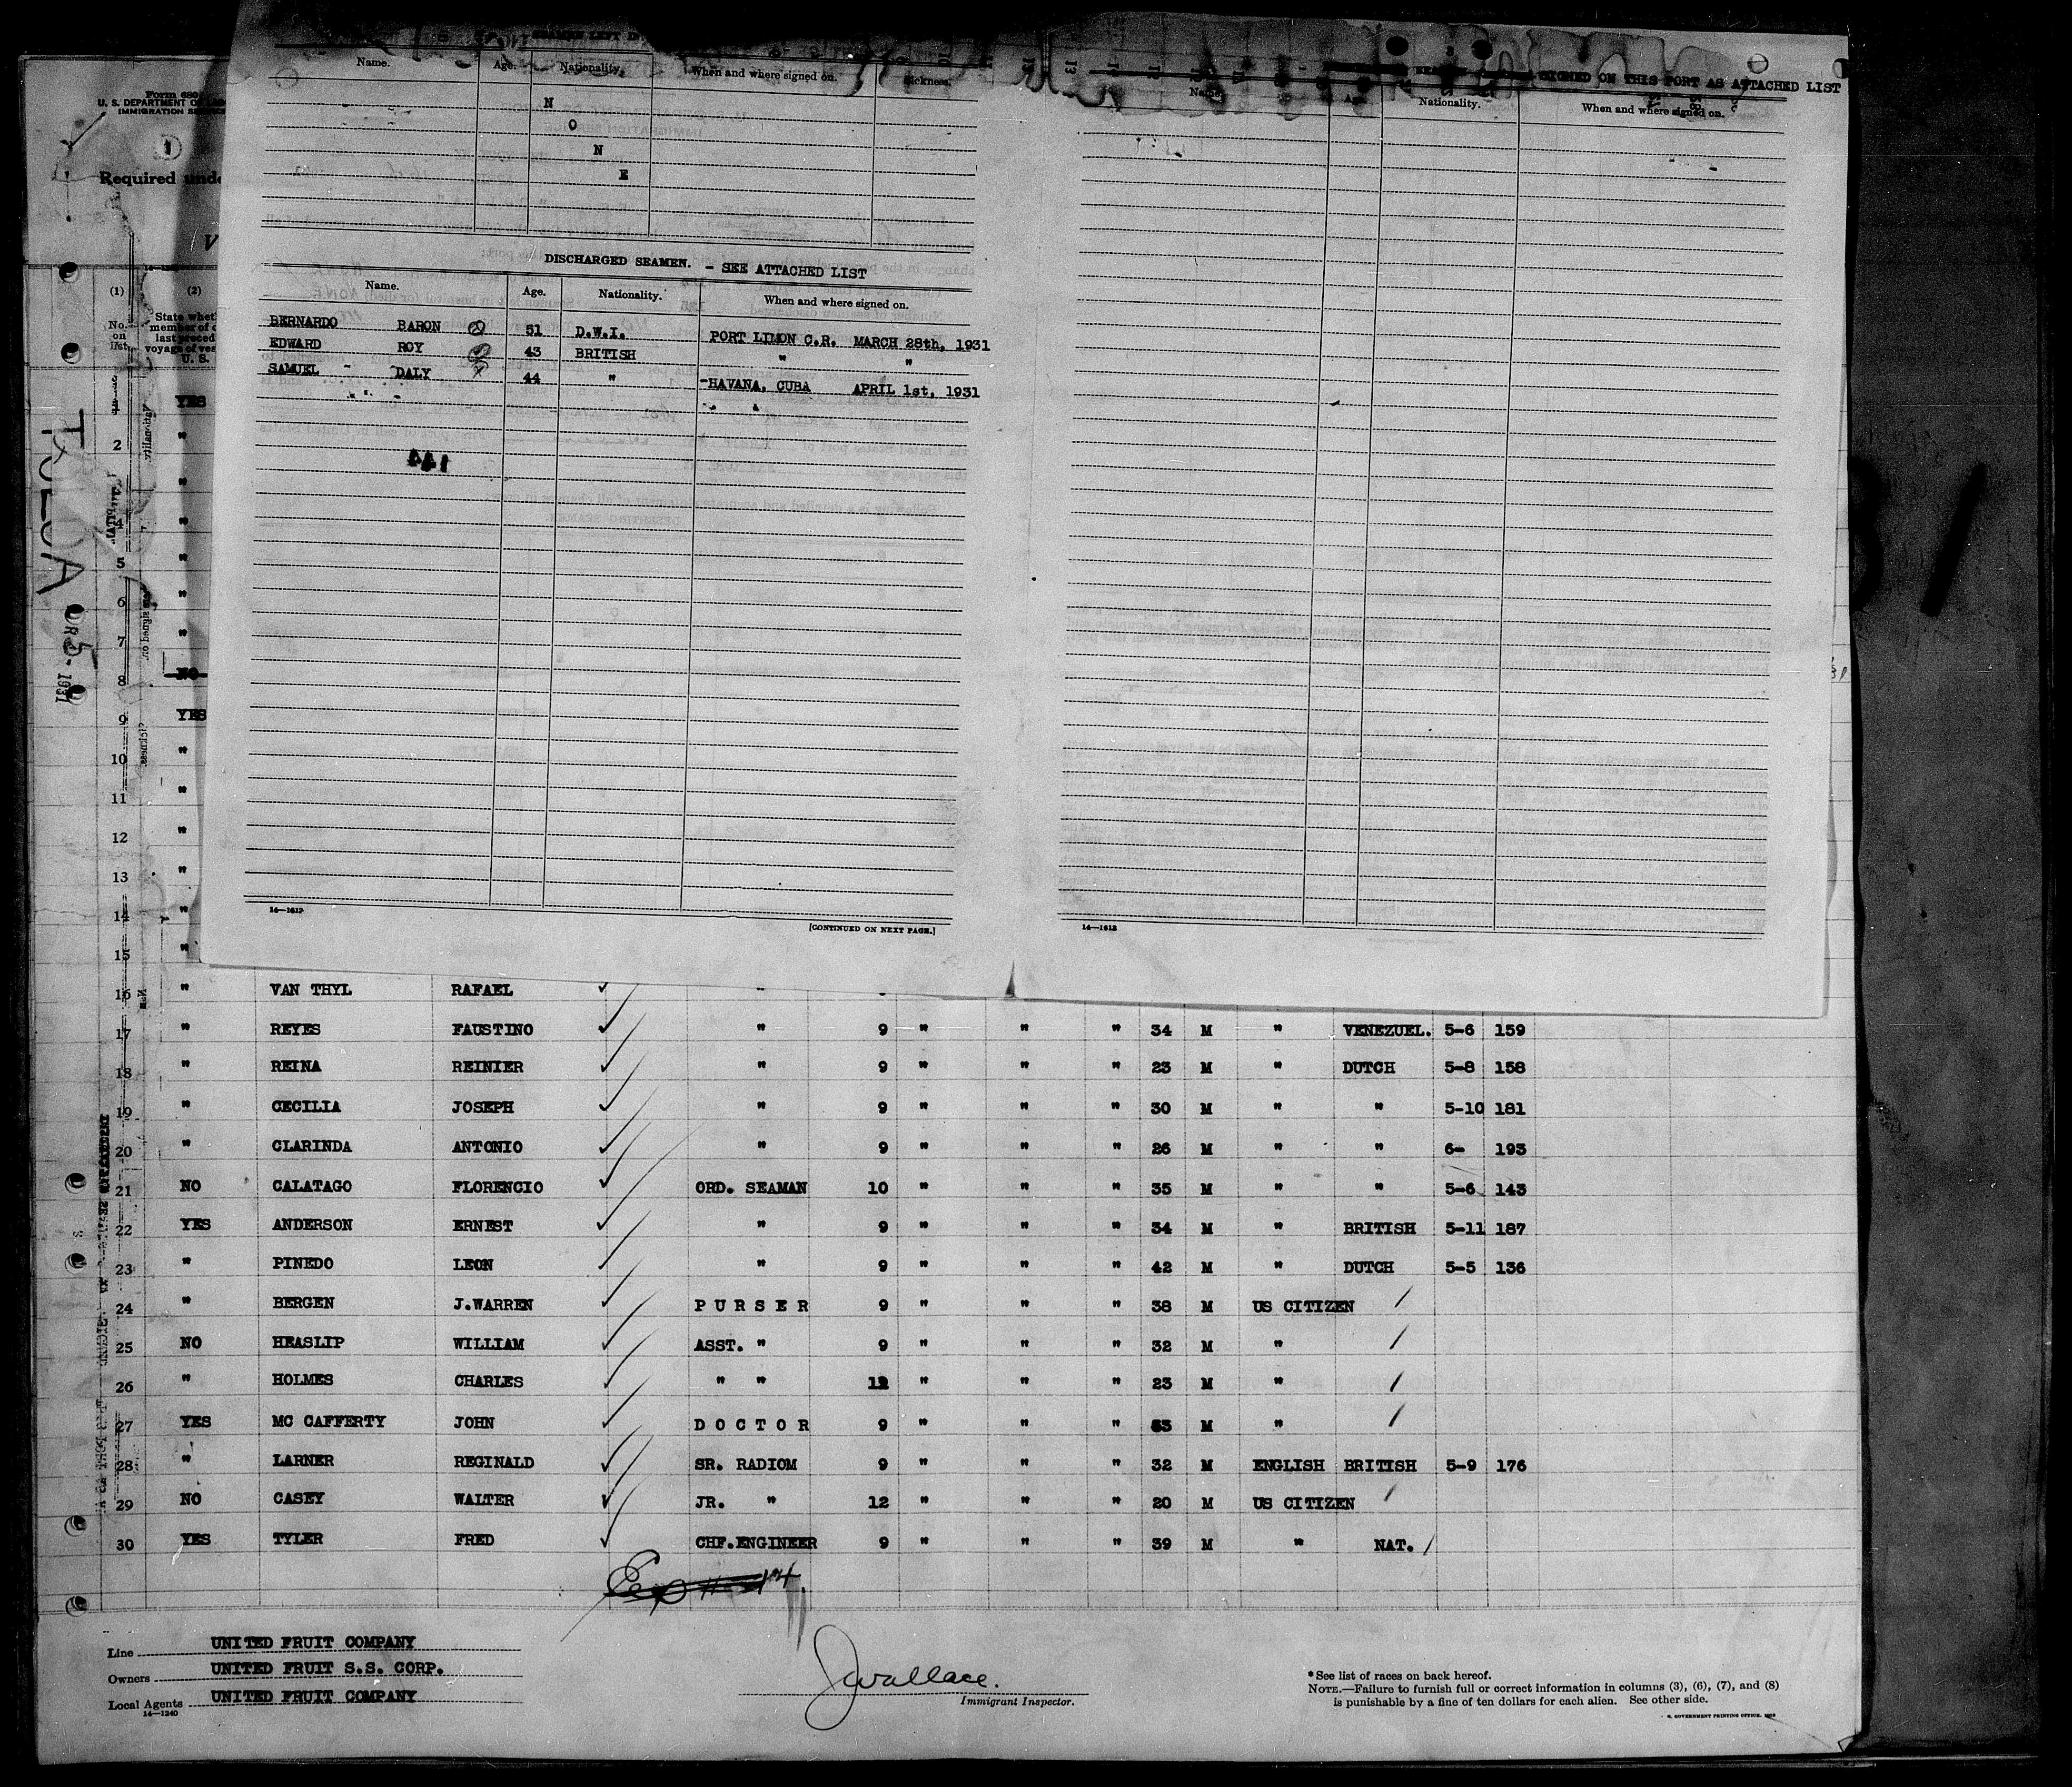 SEAMEN LEFT IN
Name. Age. Nationality. When and where signed on. Sickness.
N
O
N
E
DISCHARGED SEAMEN. - SEE ATTACHED LIST
Name. Age. Nationality. When and where signed on.
BERNARDO BARON 51 D.W.I. PORT LIMON C.R. MARCH 28th, 1931
EDWARD ROY 43 BRITISH " "
SAMUEL DALY 44 " HAVANA, CUBA APRIL 1st, 1931
14—1613
[CONTINUED ON NEXT PAGE.]
SIGNED ON THIS PORT AS ATTACHED LIST
Name. Age. Nationality. When and where signed on.
14—1613
Form 680
U. S. DEPARTMENT OF
IMMIGRATION
1
Required unde
V
(1) (2)
No. on list.
State whet
member of
last preced
voyage of ves
U. S.
TOLOA
5. 1931
1 YES
2 "
"
4 "
5 "
6 "
7 "
8 NO
9 YES
10 "
11 "
12 "
13 "
14 "
15 "
16 " VAN THYL RAFAEL "
17 " REYES FAUSTINO " 9 " " " 34 M " VENEZUEL. 5-6 159
18 " REINA REINIER " 9 " " " 23 M " DUTCH 5-8 158
19 " CECILIA JOSEPH " 9 " " " 30 M " " 5-10 181
20 " CLARINDA ANTONIO " 9 " " " 26 M " " 6- 193
21 NO CALATAGO FLORENCIO ORD. SEAMAN 10 " " " 35 M " " 5-6 143
22 YES ANDERSON ERNEST " 9 " " " 34 M " BRITISH 5-11 187
23 " PINEDO LEON " 9 " " " 42 M " DUTCH 5-5 136
24 " BERGEN J.WARREN PURSER 9 " " " 38 M US CITIZEN
25 NO HEASLIP WILLIAM ASST. " 9 " " " 32 M "
26 " HOLMES CHARLES " " 12 " " " 23 M "
27 YES MC CAFFERTY JOHN DOCTOR 9 " " " 53 M "
28 " LARNER REGINALD SR. RADIOM 9 " " " 32 M ENGLISH BRITISH 5-9 176
29 NO CASEY WALTER JR. " 12 " " " 20 M US CITIZEN
30 YES TYLER FRED CHF.ENGINEER 9 " " " 39 M " NAT.
Line UNITED FRUIT COMPANY
Owners UNITED FRUIT S.S. CORP.
Local Agents UNITED FRUIT COMPANY
14—1240
JWallace.
Immigrant Inspector.
*See list of races on back hereof.
NOTE.—Failure to furnish full or correct information in columns (3), (6), (7), and (8)
is punishable by a fine of ten dollars for each alien. See other side.